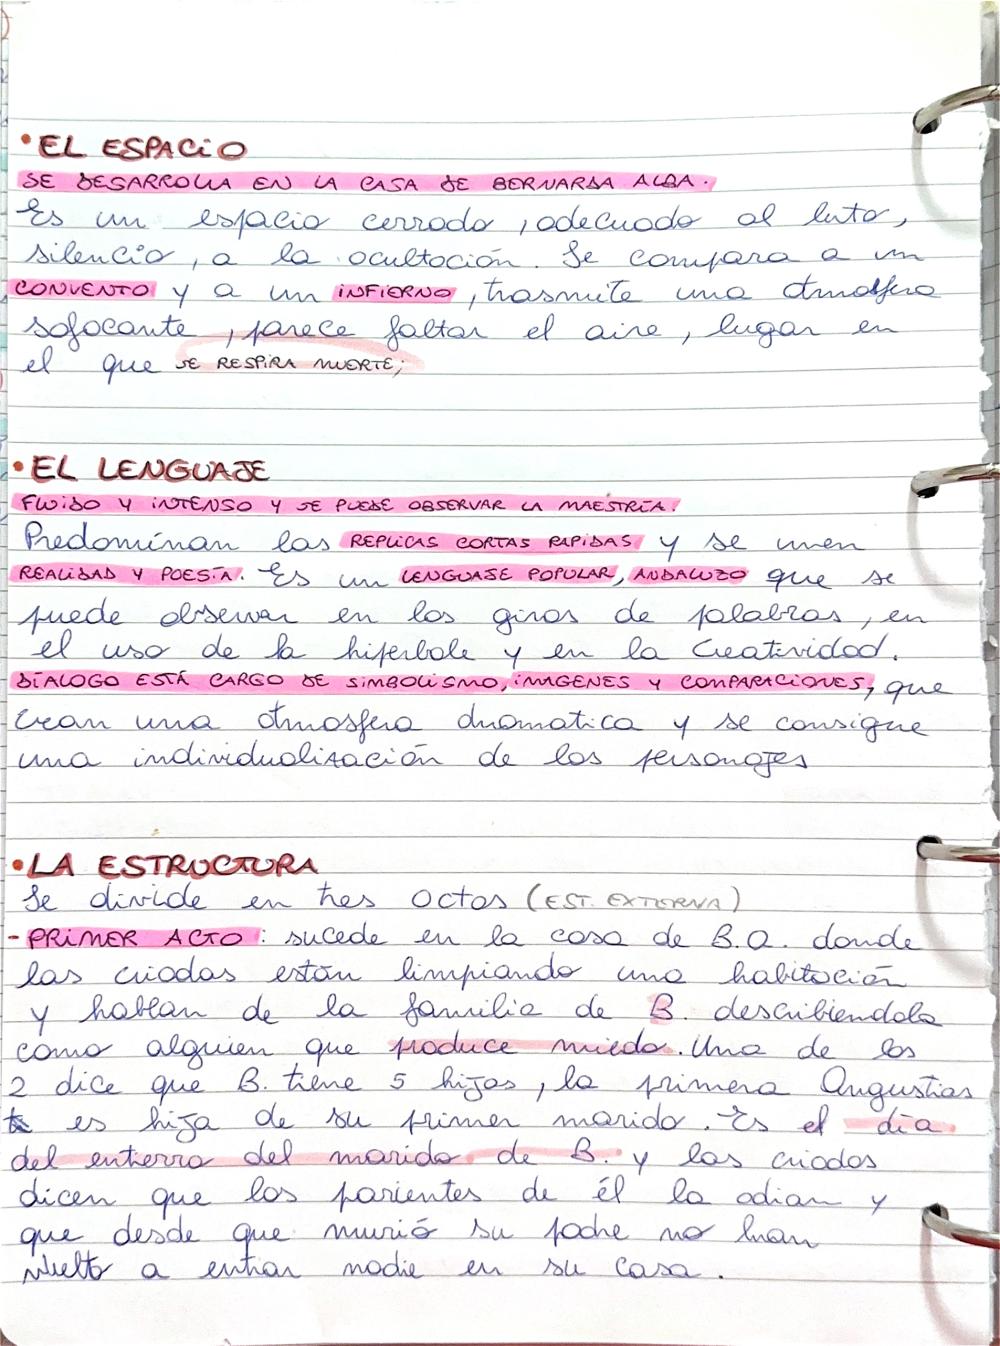 • EL ESPACIO
SE DESARROLLA EN LA CASA DE BERNARDA ALBA.
Es un espacio cerrado, adecuado al luto,
silencio, a la ocultación. Se compara a un
CONVENTO y a un INFIERNO, trasmite una atmosfera
sofocante, parece faltar el aire, lugar en
el que SE RESPIRA MUERTE;
• EL LENGUAJE
FLUIDO Y INTENSO Y SE PUEDE OBSERVAR LA MAESTRÍA.
Predominan las REPLICAS CORTAS RAPIDAS y se unen
REALIDAD Y POESÍA. Es un LENGUAJE POPULAR, ANDALUZO que se
puede observar en los giros de palabras, en
el uso de la hiperbole y en la creatividad.
DIALOGO ESTÁ CARGO DE SIMBOLISMO, IMAGENES Y COMPARACIONES, que
crean una atmosfera dramatica y se consigue
una individualización de los personajes
• LA ESTRUCTURA
Se divide en tres actos (EST. EXTERNA)
- PRIMER ACTO: sucede en la casa de B.A. donde
las criadas están limpiando una habitación
y hablan de la familia de B. describiendola
como alguien que produce miedo. Una de las
2 dice que B. tiene 5 hijas, la primera Angustias
es hija de su primer marido. Es el día
del entierro del marido de B. y las criadas
dicen que los parientes de él la odian y
que desde que murió su padre no han
vuelto a entrar nadie en su casa.